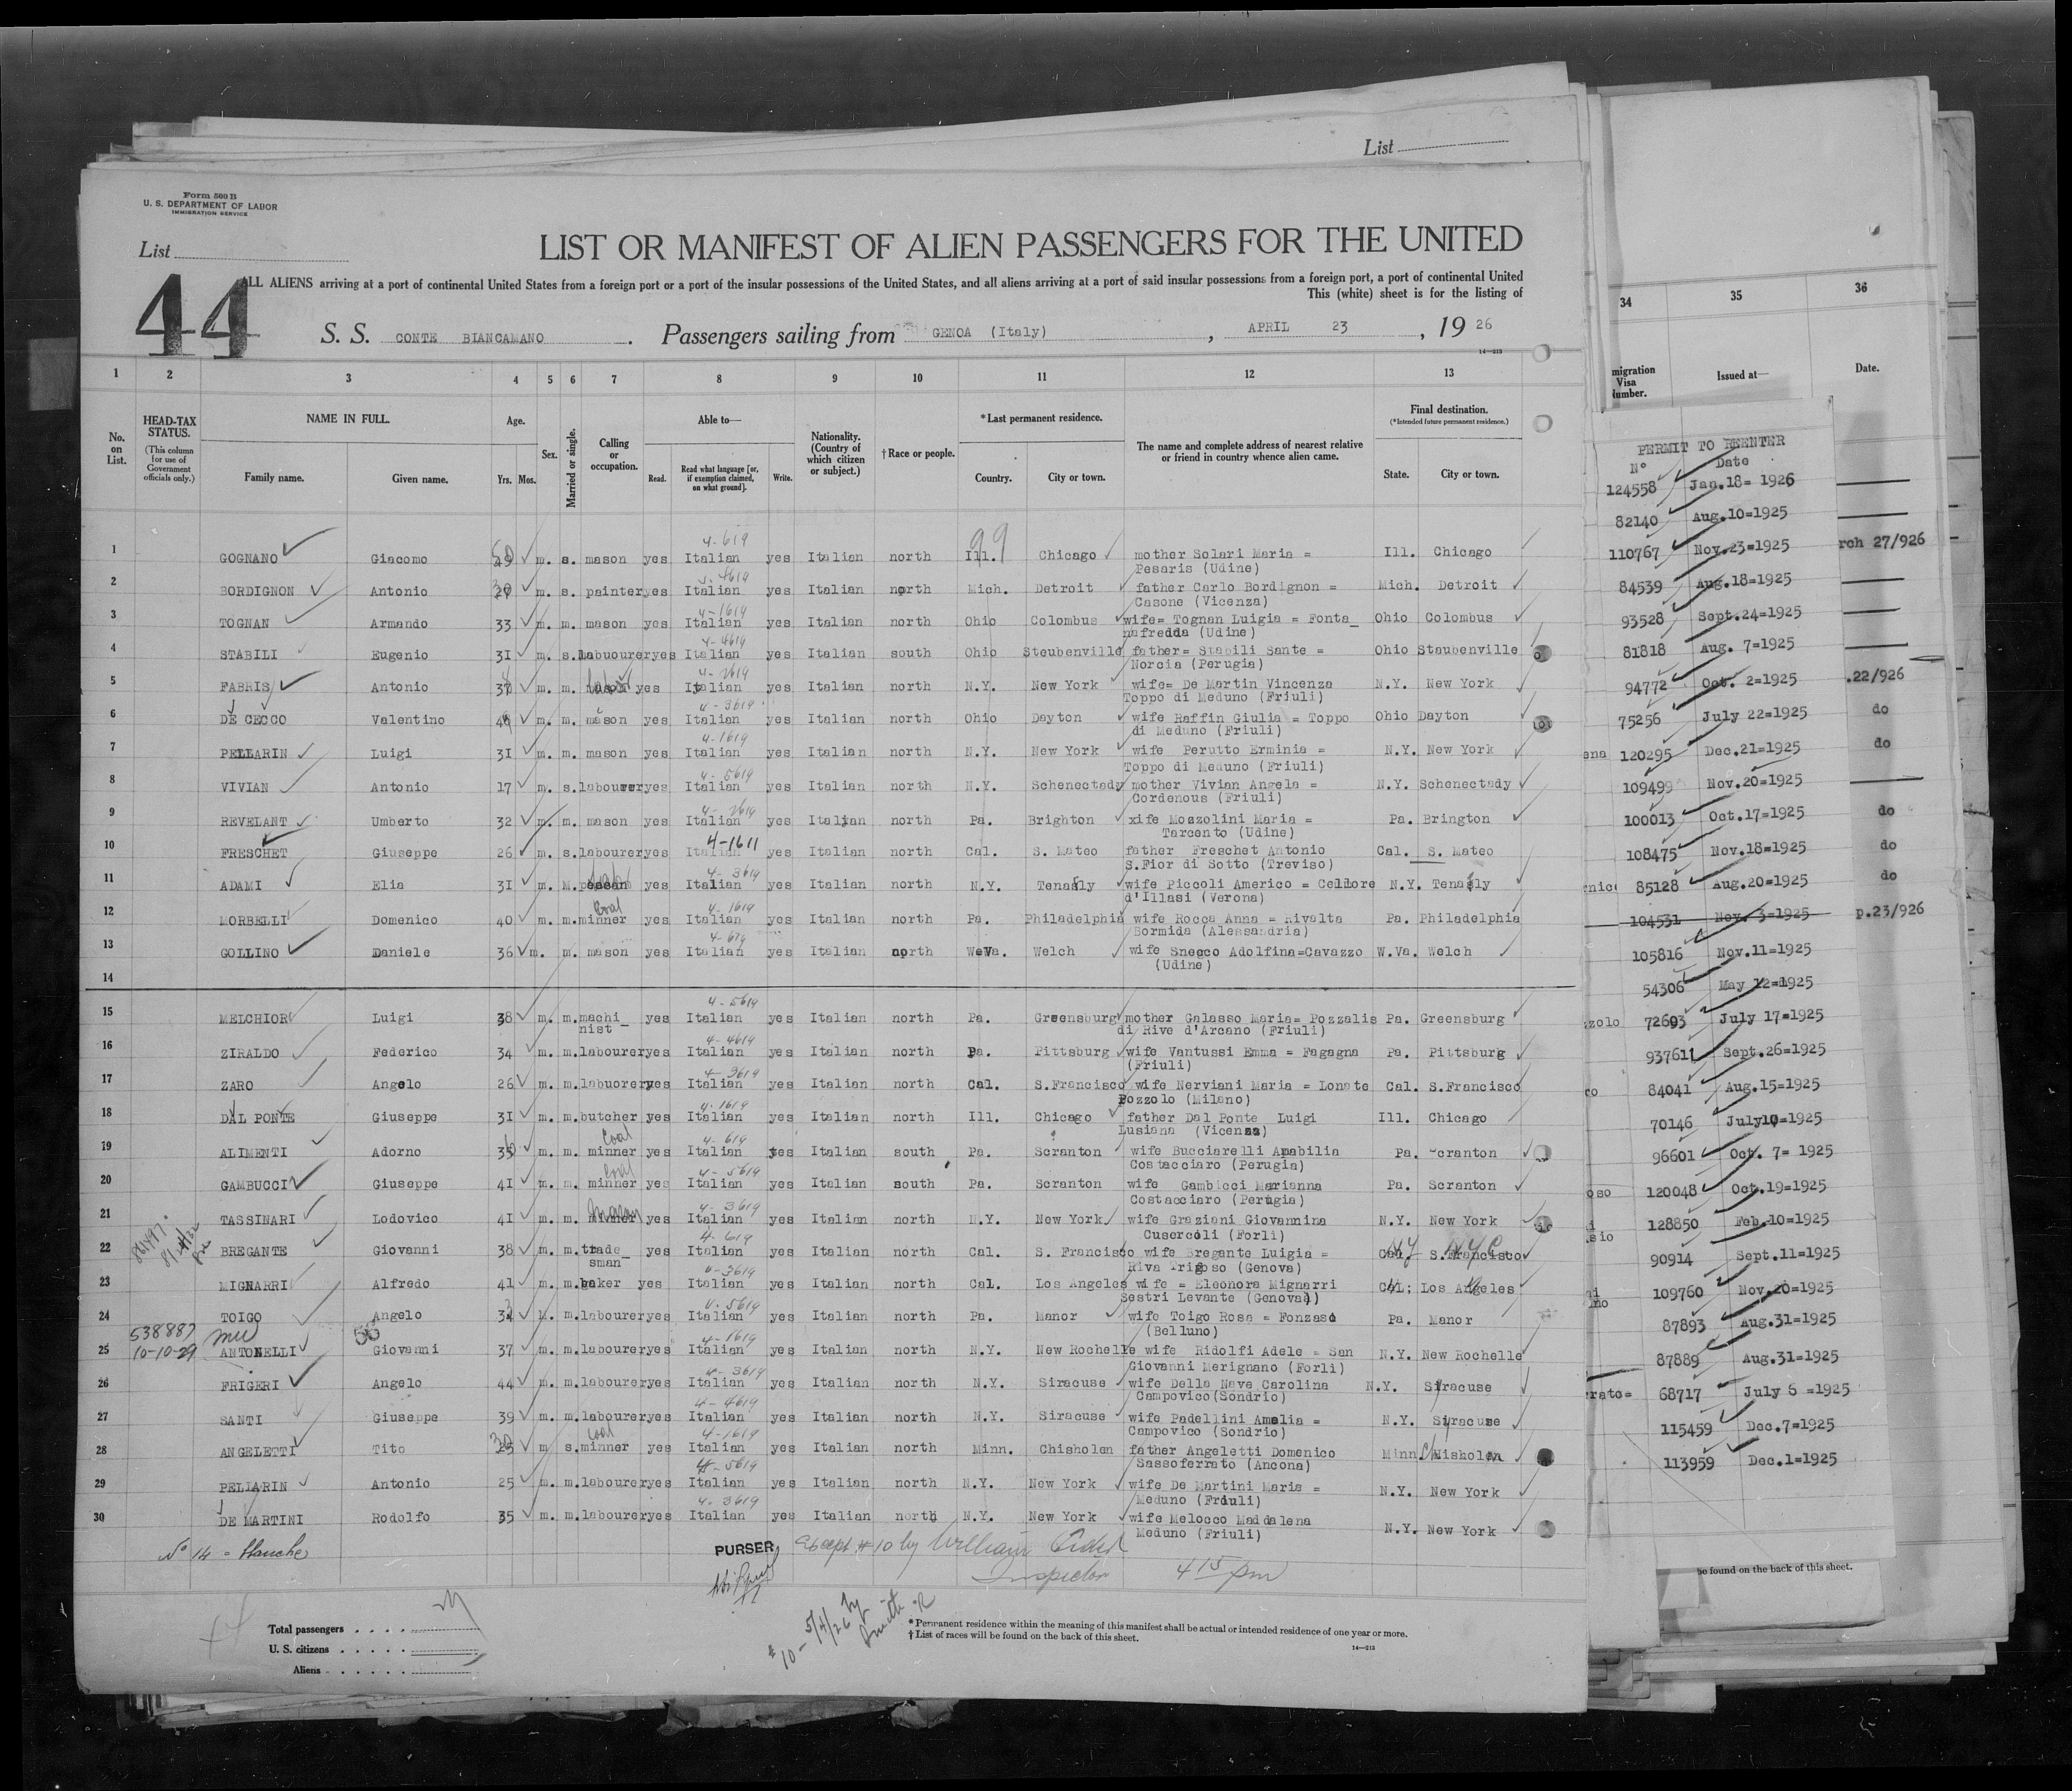 List
Form 500 B
U. S. DEPARTMENT OF LABOR
IMMIGRATION SERVICE
List
LIST OR MANIFEST OF ALIEN PASSENGERS FOR THE UNITED
44
ALL ALIENS arriving at a port of continental United States from a foreign port or a port of the insular possessions of the United States, and all aliens arriving at a port of said insular possessions from a foreign port, a port of continental United
This (white) sheet is for the listing of
S. S. CONTE BIANCAMANO. Passengers sailing from GENOA (Italy), APRIL 23, 19 26
14—213
1 2 3 4 5 6 7 8 9 10 11 12 13
No. on List.
HEAD-TAX STATUS.
(This column for use of Government officials only.)
NAME IN FULL.
Family name. Given name.
Age.
Yrs. Mos.
Sex.
Married or single.
Calling or occupation.
Able to—
Read. Read what language [or, if exemption claimed, on what ground]. Write.
Nationality. (Country of which citizen or subject.)
† Race or people.
*Last permanent residence.
Country. City or town.
The name and complete address of nearest relative or friend in country whence alien came.
Final destination.
(*Intended future permanent residence.)
State. City or town.
99
4-619
1 GOGNANO Giacomo m. s. mason yes Italian yes Italian north Ill. Chicago mother Solari Maria = Ill. Chicago
Pesaris (Udine)
2 BORDIGNON Antonio m. s. painter yes Italian yes Italian north Mich. Detroit father Carlo Bordignon = Mich. Detroit
Casone (Vicenza)
4-1619
3 TOGNAN Armando 33 m. m. mason yes Italian yes Italian north Ohio Colombus wife= Tognan Luigia = Fonta_ Ohio Colombus
nafredda (Udine)
4-4619
4 STABILI Eugenio 31 m. s. labuourer yes Italian yes Italian south Ohio Steubenville father= Stabili Sante = Ohio Staubenville
Norcia (Perugia)
4-2619
5 FABRIS Antonio 37 m. m. yes Italian yes Italian north N.Y. New York wife= De Martin Vincenza N.Y. New York
Toppo di Meduno (Friuli)
4-3619
6 DE CECCO Valentino m. m. mason yes Italian yes Italian north Ohio Dayton wife Raffin Giulia = Toppo Ohio Dayton
di Meduno (Friuli)
4-1619
7 PELLARIN Luigi 31 m. m. mason yes Italian yes Italian north N.Y. New York wife Perutto Erminia = N.Y. New York
Toppo di Meduno (Friuli)
4-5619
8 VIVIAN Antonio 17 m. s. labourer yes Italian yes Italian north N.Y. Schenectady mother Vivian Angela = N.Y. Schenectady
Cordenous (Friuli)
4-2619
9 REVELANT Umberto 32 m. m. mason yes Italian yes Italian north Pa. Brighton xife Mozzolini Maria = Pa. Brington
Tarcento (Udine)
4-1611
10 FRESCHET Giuseppe 26 m. s. labourer yes Italian yes Italian north Cal. S. Mateo father Freschet Antonio Cal. S. Mateo
S.Fior di Sotto (Treviso)
4-3619
11 ADAMI Elia 31 m. M. yes Italian yes Italian north N.Y. Tenafly wife Piccoli Americo = Cellore N.Y. Tenafly
d'Illasi (Verona)
Coal 4-1619
12 MORBELLI Domenico 40 m. m. minner yes Italian yes Italian north Pa. Philadelphia wife Rocca Anna = Rivalta Pa. Philadelphia
Bormida (Alessandria)
4-619
13 GOLLINO Daniele 36 m. m. mason yes Italian yes Italian north W.Va. Welch wife Snecco Adolfina=Cavazzo W.Va. Welch
(Udine)
14
4-5619
15 MELCHIOR Luigi 38 m. m. machi_ yes Italian yes Italian north Pa. Greensburg mother Galasso Maria= Pozzalis Pa. Greensburg
nist di Rive d'Arcano (Friuli)
4-4619
16 ZIRALDO Federico 34 m. m. labourer yes Italian yes Italian north Pa. Pittsburg wife Vantussi Emma = Fagagna Pa. Pittsburg
(Friuli)
4-3619
17 ZARO Angelo 26 m. m. labuorer yes Italian yes Italian north Cal. S.Francisco wife Nerviani Maria = Lonate Cal. S.Francisco
Pozzolo (Milano)
4-1619
18 DAL PONTE Giuseppe 31 m. m. butcher yes Italian yes Italian north Ill. Chicago father Dal Ponte Luigi Ill. Chicago
Lusiana (Vicenza)
Coal 4-619
19 ALIMENTI Adorno m. m. minner yes Italian yes Italian south Pa. Scranton wife Bucciarelli Amabilia Pa. Scranton
Costacciaro (Perugia)
Coal 4-5619
20 GAMBUCCI Giuseppe 41 m. m. minner yes Italian yes Italian south Pa. Scranton wife Gambicci Marianna Pa. Scranton
Costacciaro (Perugia)
4-3619
21 TASSINARI Lodovico 41 m. m. mason yes Italian yes Italian north N.Y. New York wife Graziani Giovannina N.Y. New York
Cusercoli (Forlì)
4-619
22 BREGANTE Giovanni 38 m. m. trade_ yes Italian yes Italian north Cal. S. Francisco wife Bregante Luigia = Cal. S.Francisco NY NYC
sman Riva Trigoso (Genova)
4-3619
23 MIGNARRI Alfredo 41 m. m. baker yes Italian yes Italian north Cal. Los Angeles wife = Eleonora Mignarri Cal. Los Angeles
Sestri Levante (Genova)
4-5619
24 TOIGO Angelo m. m. labourer yes Italian yes Italian north Pa. Manor wife Toigo Rosa = Fonzaso Pa. Manor
(Belluno)
538887
10-10-29
4-1619
25 ANTONELLI Giovanni 37 m. m. labourer yes Italian yes Italian north N.Y. New Rochelle wife Ridolfi Adele = San N.Y. New Rochelle
Giovanni Merignano (Forlì)
4-3619
26 FRIGERI Angelo 44 m. m. labourer yes Italian yes Italian north N.Y. Siracuse wife Della Nave Carolina N.Y. Syracuse
Campovico(Sondrio)
4-4619
27 SANTI Giuseppe 39 m. m. labourer yes Italian yes Italian north N.Y. Siracuse wife Padellini Amelia = N.Y. Syracuse
Campovico (Sondrio)
Coal 4-1619
28 ANGELETTI Tito m s. minner yes Italian yes Italian north Minn. Chisholen father Angeletti Domenico Minn. Chisholm
Sassoferrato (Ancona)
4-5619
29 PELLARIN Antonio 25 m. m. labourer yes Italian yes Italian north N.Y. New York wife De Martini Maria = N.Y. New York
Meduno (Friuli)
4-3619
30 DE MARTINI Rodolfo 35 m. m. labourer yes Italian yes Italian north N.Y. New York wife Melocco Maddalena N.Y. New York
Meduno (Friuli)
N° 14 = Hanche
PURSER
Except #10 by William
Inspector 4 15 pm
#10- 5/4/26 by Smith
Total passengers
U. S. citizens
Aliens
* Permanent residence within the meaning of this manifest shall be actual or intended residence of one year or more.
† List of races will be found on the back of this sheet.
14—213
34 35 36
migration Visa Number.
Issued at—
Date.
PERMIT TO REENTER
N° Date
124558 Jan.18= 1926
82140 Aug.10=1925
110767 Nov.23=1925 rch 27/926
84539 Aug.18=1925
93528 Sept.24=1925
81818 Aug. 7=1925
94772 Oct. 2=1925 .22/926
75256 July 22=1925 do
ena 120295 Dec.21=1925 do
109499 Nov.20=1925
100013 Oct.17=1925 do
108475 Nov.18=1925 do
rnic 85128 Aug.20=1925 do
104531 Nov. 3=1925 p.23/926
105816 Nov.11=1925
54306 May 12=1925
zzolo 72693 July 17=1925
93761 Sept.26=1925
co 84041 Aug.15=1925
70146 July =1925
96601 Oct. 7= 1925
oso 120048 Oct.19=1925
128850 Feb.10=1925
sio 90914 Sept.11=1925
109760 Nov.20=1925
87893 Aug.31=1925
87889 Aug.31=1925
rato= 68717 July 6 =1925
115459 Dec.7=1925
113959 Dec.1=1925
be found on the back of this sheet.